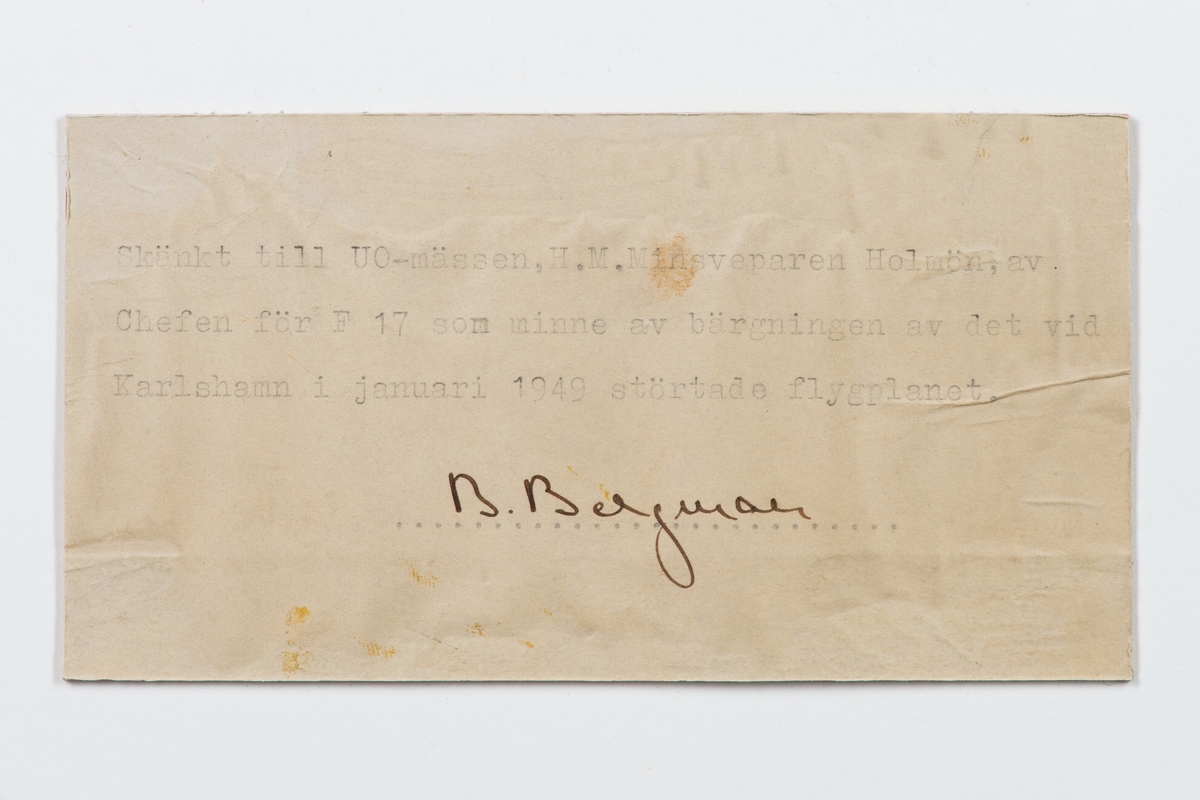 Skänkt till UO-mässen,H.M.Minsveparen Holmön,av
Chefen för F 17 som minne av bärgningen av det vid
Karlshamn i januari 1949 störtade flygplanet.
B. Bergman